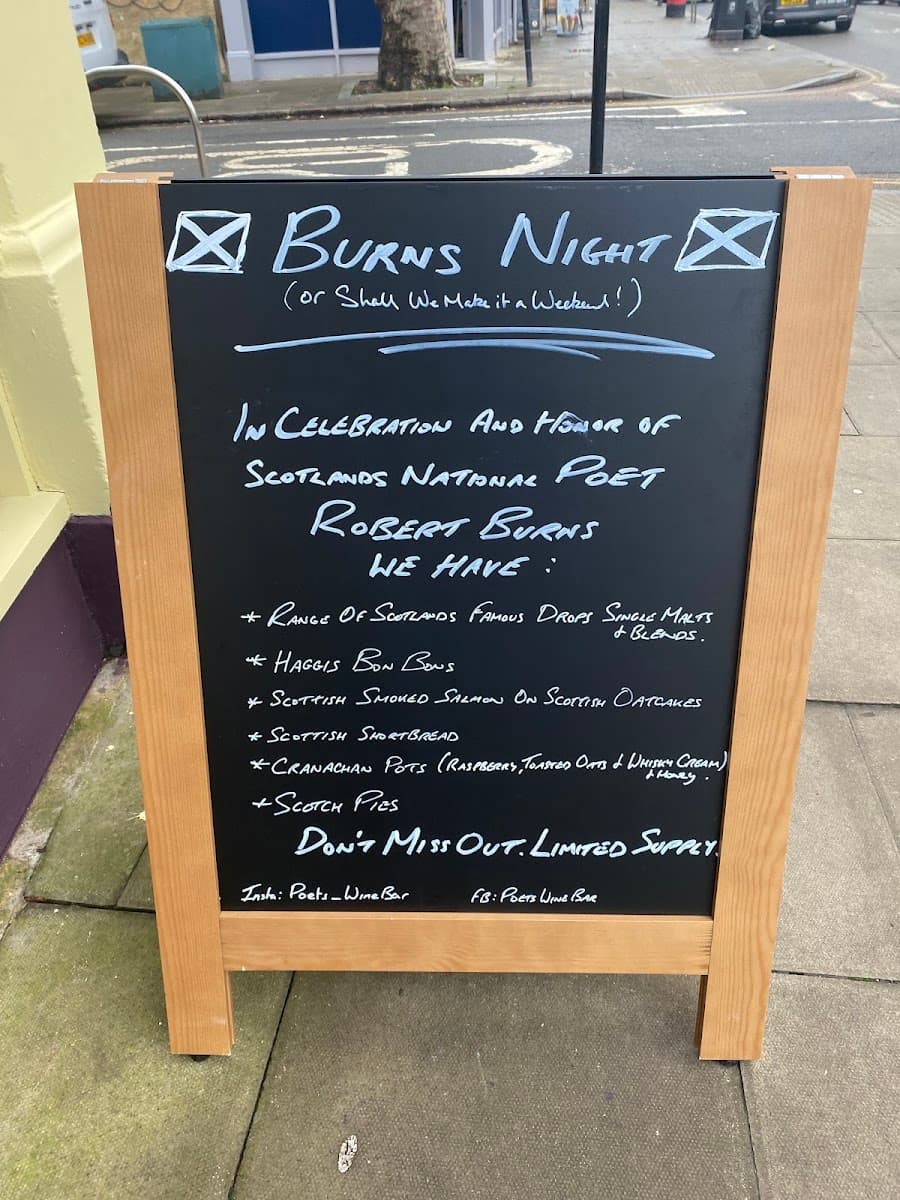 BURNS NIGHT
(or Shall We Make it a Weekend!)
IN CELEBRATION AND HONOR OF
SCOTLANDS NATIONAL POET
ROBERT BURNS
WE HAVE :
* RANGE OF SCOTLANDS FAMOUS DROPS SINGLE MALTS
& BLENDS.
* HAGGIS BON BONS
* SCOTTISH SMOKED SALMON ON SCOTTISH OATCAKES
* SCOTTISH SHORTBREAD
* CRANACHAN POTS (RASPBERRY, TOASTED OATS & WHISKY CREAM)
& HONEY.
* SCOTCH PIES
DON'T MISS OUT. LIMITED SUPPLY.
Insta: Poets_WineBar
FB: POETS WINE BAR